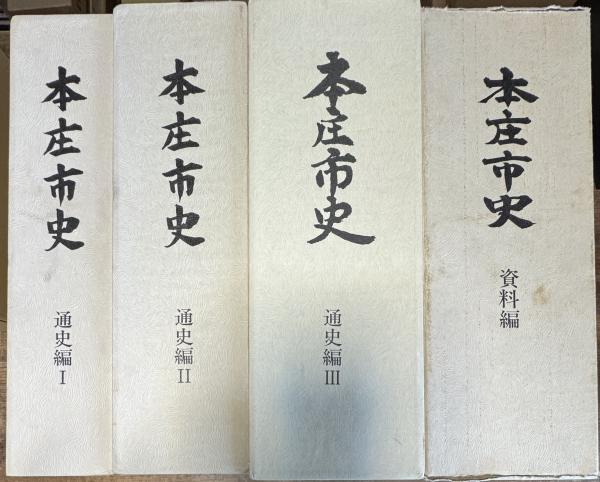 本庄市史
通史編Ⅰ
本庄市史
通史編Ⅱ
本庄市史
通史編Ⅲ
本庄市史
資料編